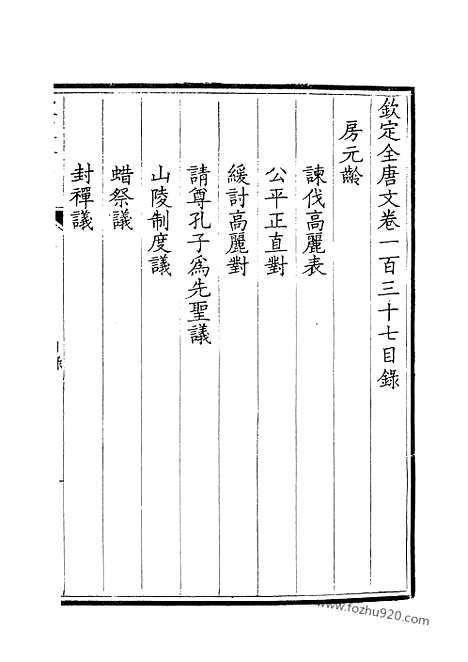 欽定全唐文卷一百三十七目錄
房元齡
諫伐高麗表
公平正直對
緩討高麗對
請尊孔子為先聖議
山陵制度議
蜡祭議
封禪議
www.fozhu920.com